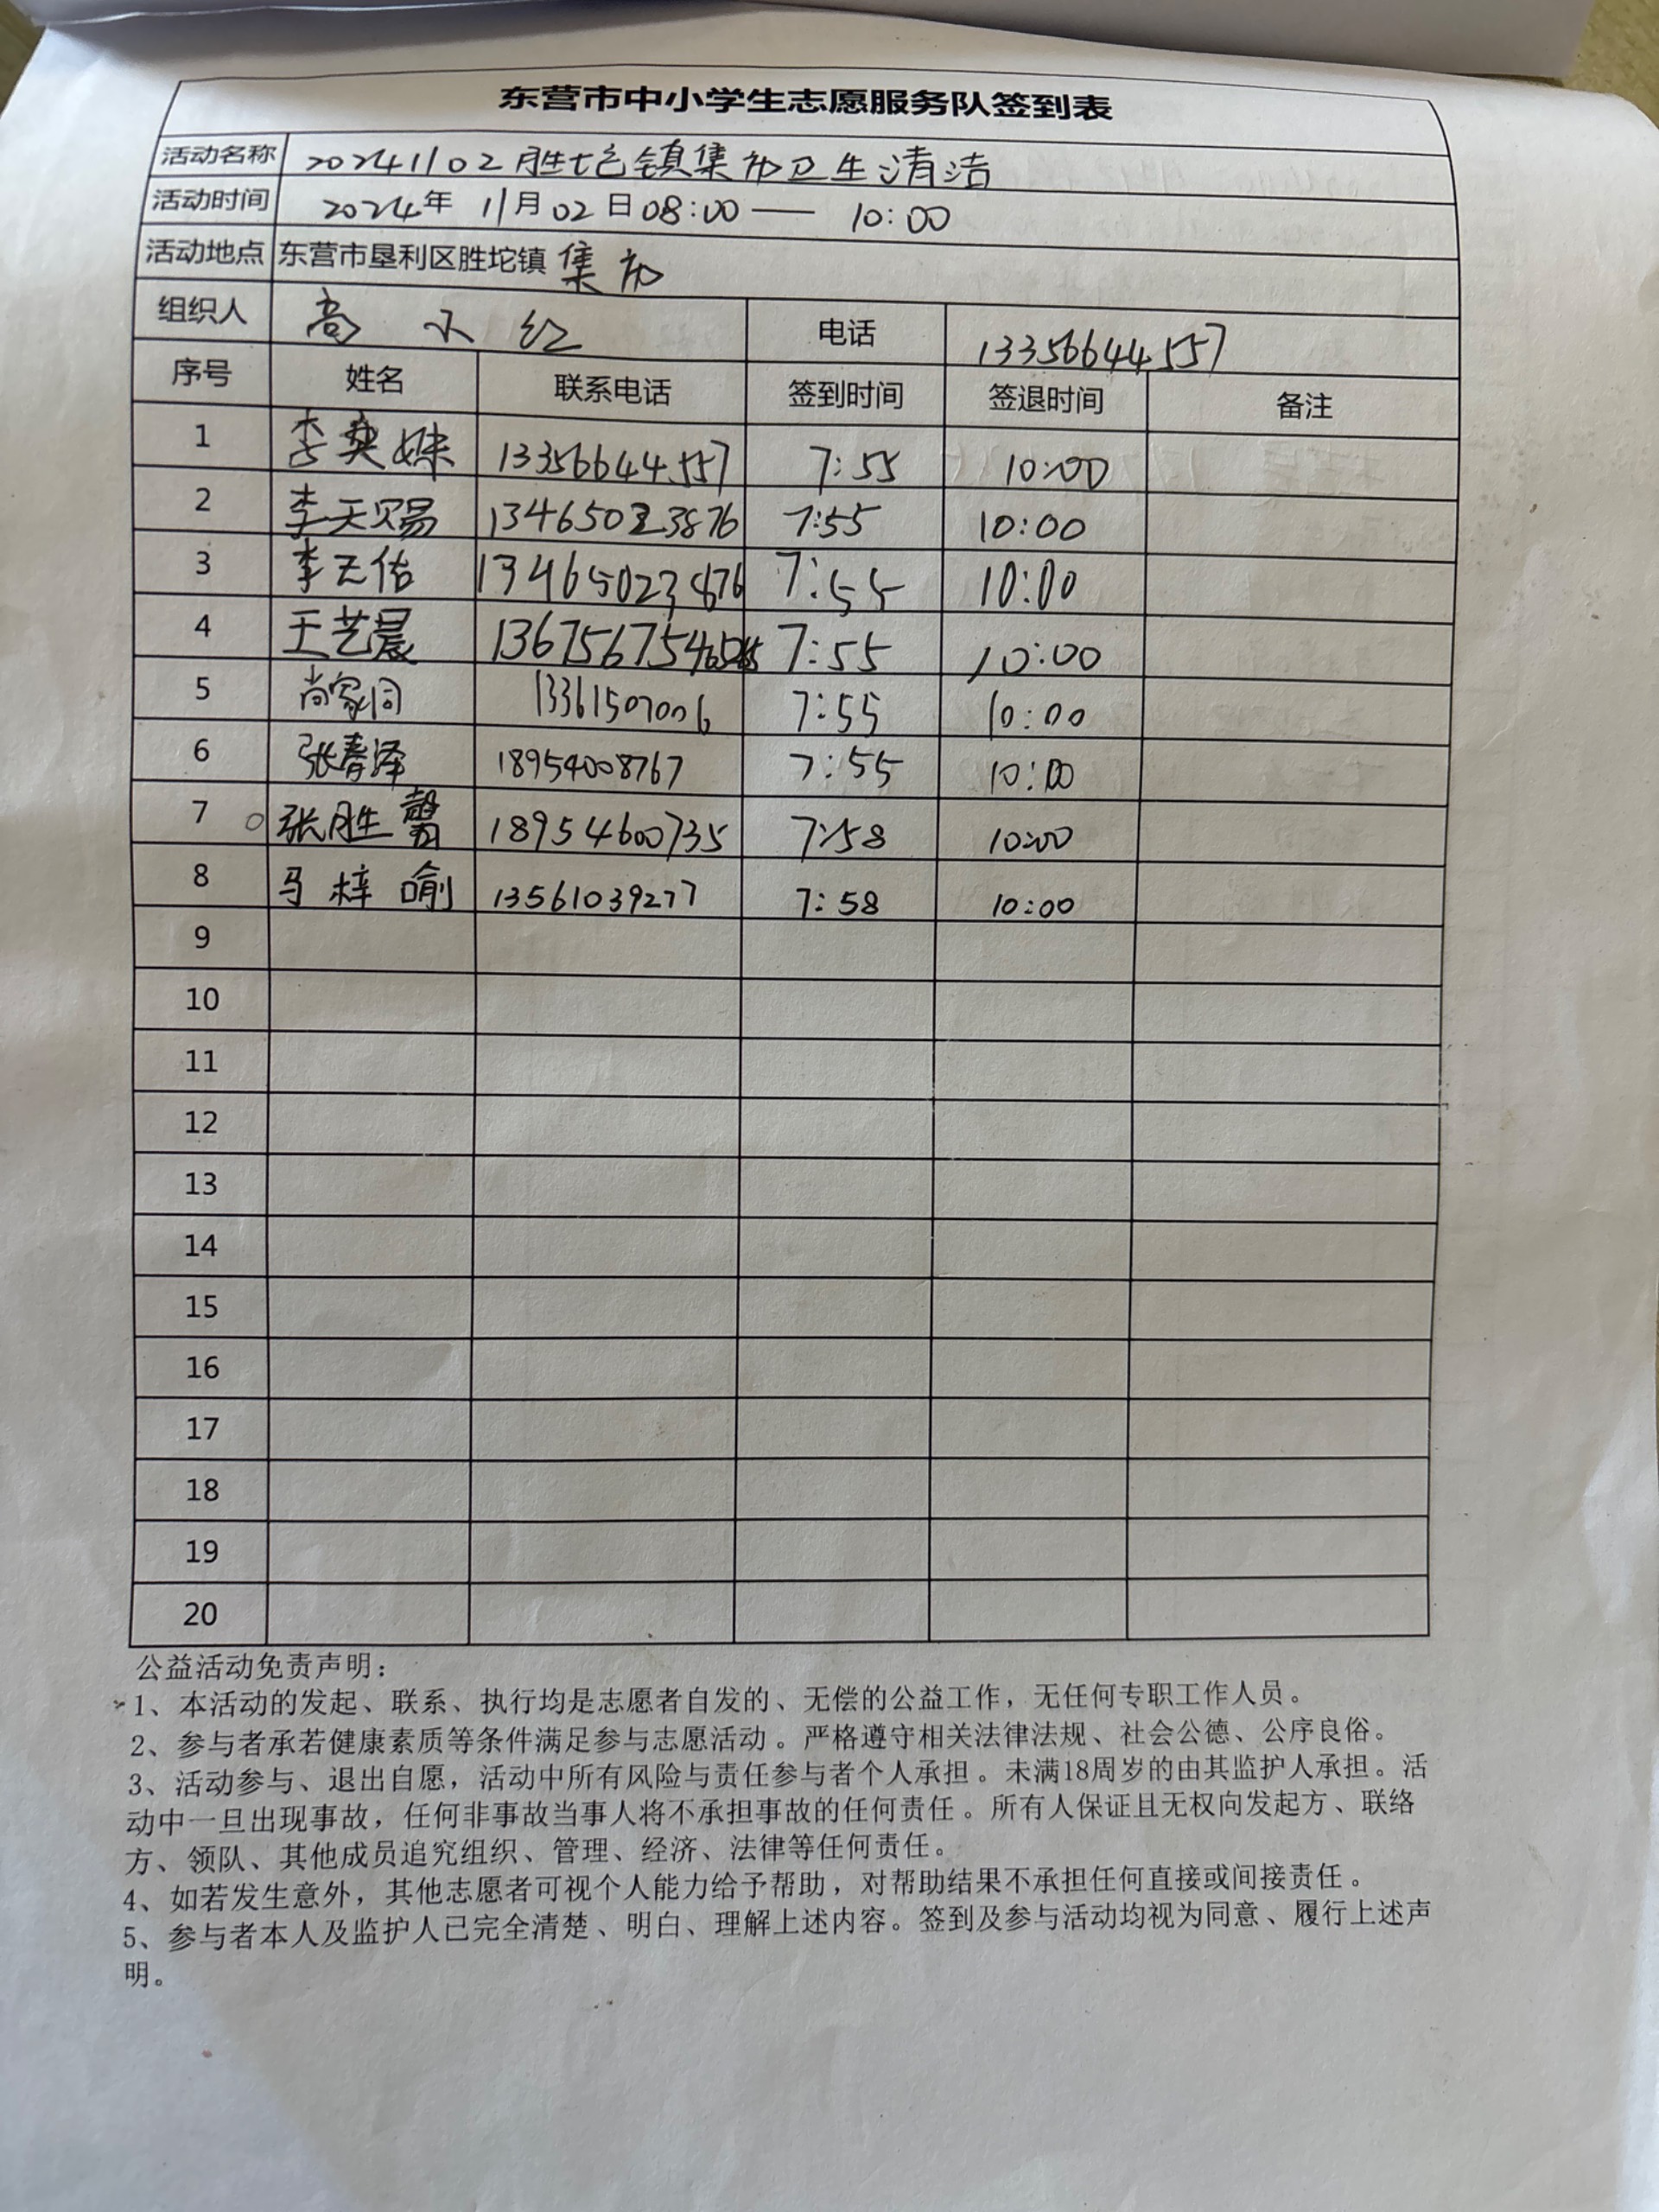 东营市中小学生志愿服务队签到表
活动名称 20241102胜坨镇集市卫生清洁
活动时间 2024年 11月02日08:00—— 10:00
活动地点 东营市垦利区胜坨镇 集市
组织人 高小红 电话 13356644557
序号 姓名 联系电话 签到时间 签退时间 备注
1 李奕姝 13356644557 7:55 10:00
2 李天赐 13465023876 7:55 10:00
3 李天佑 13465023876 7:55 10:00
4 王艺晨 7:55 10:00
5 尚家同 13361507006 7:55 10:00
6 张春泽 18954008767 7:55 10:00
7 张胜馨 18954600735 7:58 10:00
8 马梓喻 13561039277 7:58 10:00
9
10
11
12
13
14
15
16
17
18
19
20
公益活动免责声明：
1、本活动的发起、联系、执行均是志愿者自发的、无偿的公益工作，无任何专职工作人员。
2、参与者承若健康素质等条件满足参与志愿活动。严格遵守相关法律法规、社会公德、公序良俗。
3、活动参与、退出自愿，活动中所有风险与责任参与者个人承担。未满18周岁的由其监护人承担。活
动中一旦出现事故，任何非事故当事人将不承担事故的任何责任。所有人保证且无权向发起方、联络
方、领队、其他成员追究组织、管理、经济、法律等任何责任。
4、如若发生意外，其他志愿者可视个人能力给予帮助，对帮助结果不承担任何直接或间接责任。
5、参与者本人及监护人已完全清楚、明白、理解上述内容。签到及参与活动均视为同意、履行上述声
明。